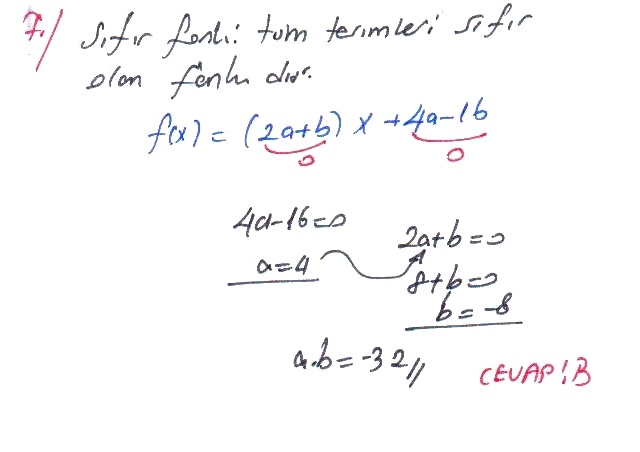 7./ Sıfır fonk: tüm terimleri sıfır
olan fonk dur.
f(x) = (2a+b) x +4a-16
0 0
4a-16=0
a=4
2a+b=0
8+b=0
b=-8
a.b=-32//
CEVAP: B